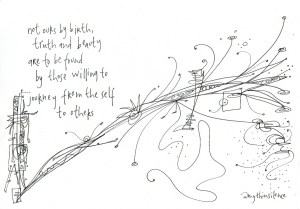 not ours by birth,
truth and beauty
are to be found
by those willing to
journey from the self
to others